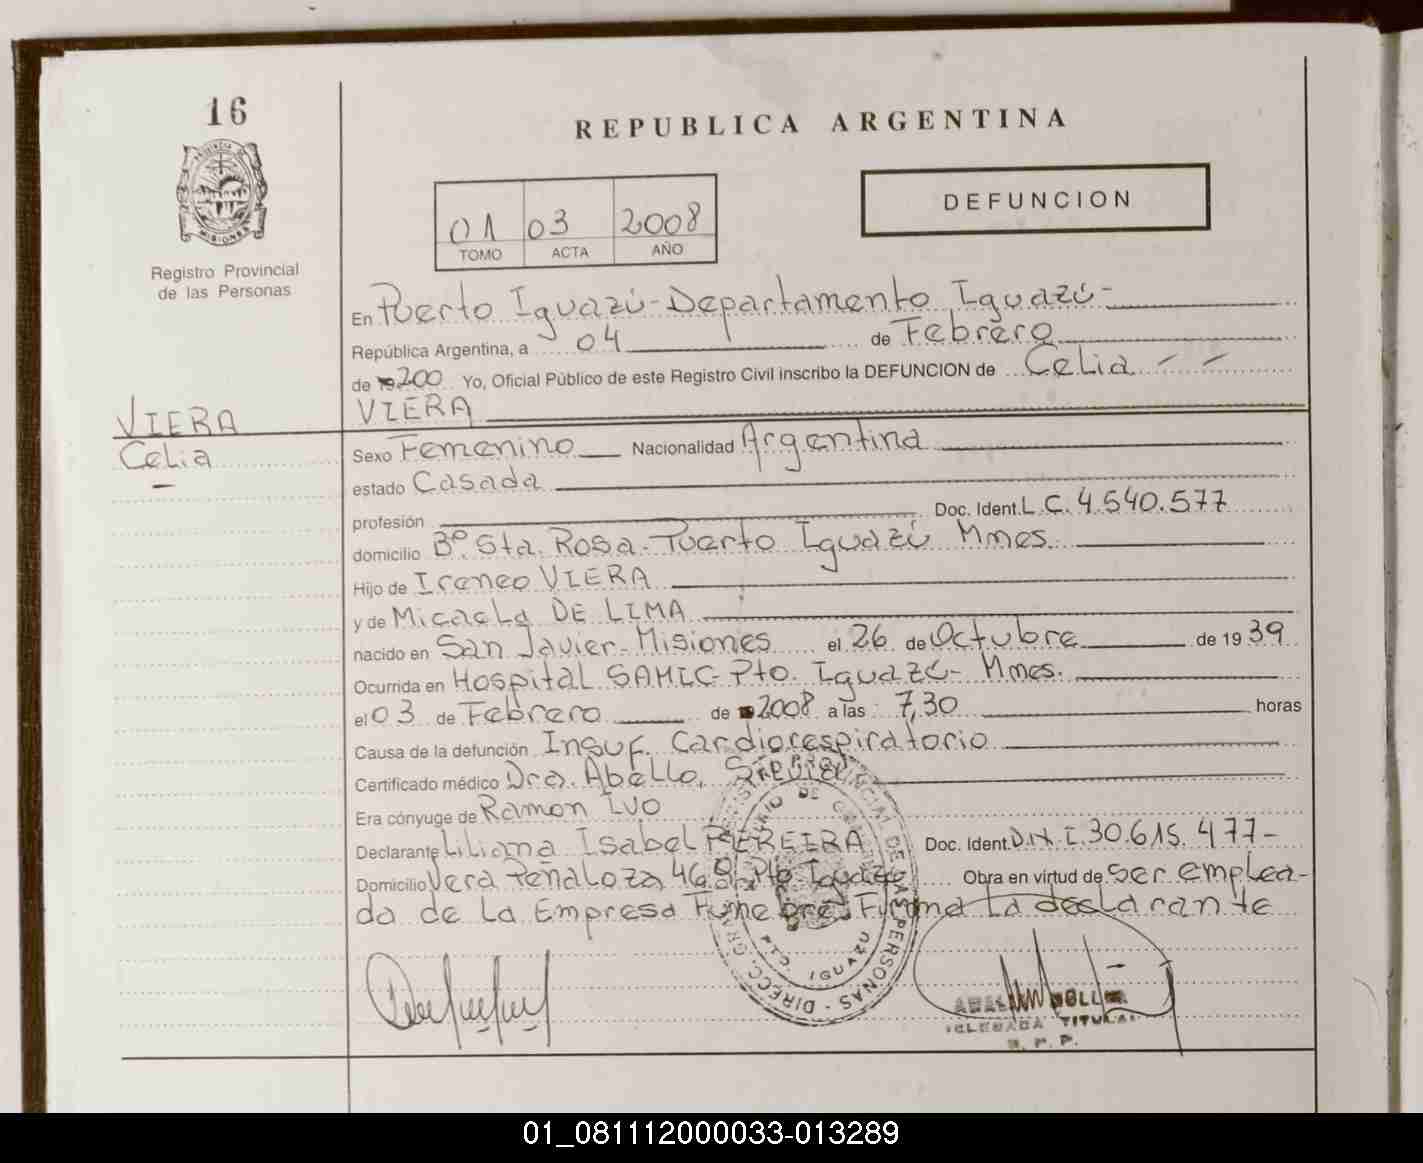 16
REPUBLICA ARGENTINA
PROVINCIA DE
MISIONES
Registro Provincial
de las Personas
DEFUNCION
01 03 2008
TOMO ACTA AÑO
En Puerto Iguazú-Departamento Iguazú-
República Argentina, a 04 de Febrero
de 200 Yo, Oficial Público de este Registro Civil inscribo la DEFUNCION de Celia - -
VIERA
VIERA
Celia
Sexo Femenino Nacionalidad Argentina
estado Casada
profesión Doc. Ident. L.C. 4.540.577
domicilio Bº. Sta. Rosa. Puerto Iguazú Mnes.
Hijo de Ireneo VIERA
y de Micaela DE LIMA
nacido en San Javier-Misiones el 26 de Octubre de 1939
Ocurrida en Hospital SAMIC-Pto. Iguazú- Mnes.
el 03 de Febrero de 2008 a las 7,30 horas
Causa de la defunción Insuf. Cardiorespiratorio
Certificado médico Dra. Abello,
Era cónyuge de Ramon Ivo
Declarante Liliana Isabel PEREIRA Doc. Ident. D.N.I. 30.615.477-
Domicilio Vera Peñaloza 468. Pto Iguazú Obra en virtud de Ser emplea-
da de La Empresa Funebre. Firma La declarante
PTO. IGUAZU
TITULAR
R. P. P.
01_081112000033-013289